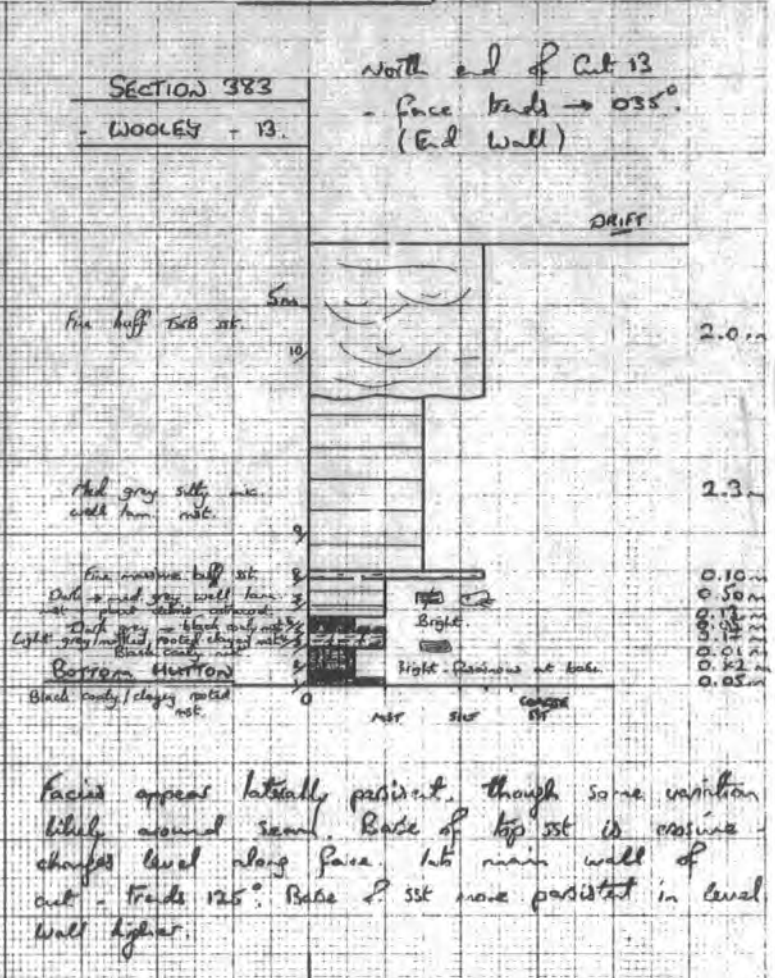 SECTION 383
- WOOLEY - 13.
North end of Cut 13
- face trends → 035°.
(End Wall)
DRIFT
5m
Fine buff TXB sst.
10
2.0m
Med grey silty mic.
well lam. mst.
9
2.3m
Fine massive buff sst.
8
0.10m
Dark → med. grey well lam.
mst - plant debris
0.50m
Bright.
Dark grey → black coaly mst
Light grey/ rooted clayey mst
Black coaly mst
0.01m
BOTTOM HUTTON
Bright - at base.
0.05m
Black coaly/clayey rooted
mst.
0
MST
SILT
COARSE
Facies appear laterally persistent, though some variation
likely around seam. Base of top sst is erosive -
changes level along face. Into main wall of
cut - Trends 125°. Base of sst more persistent in level
wall higher.